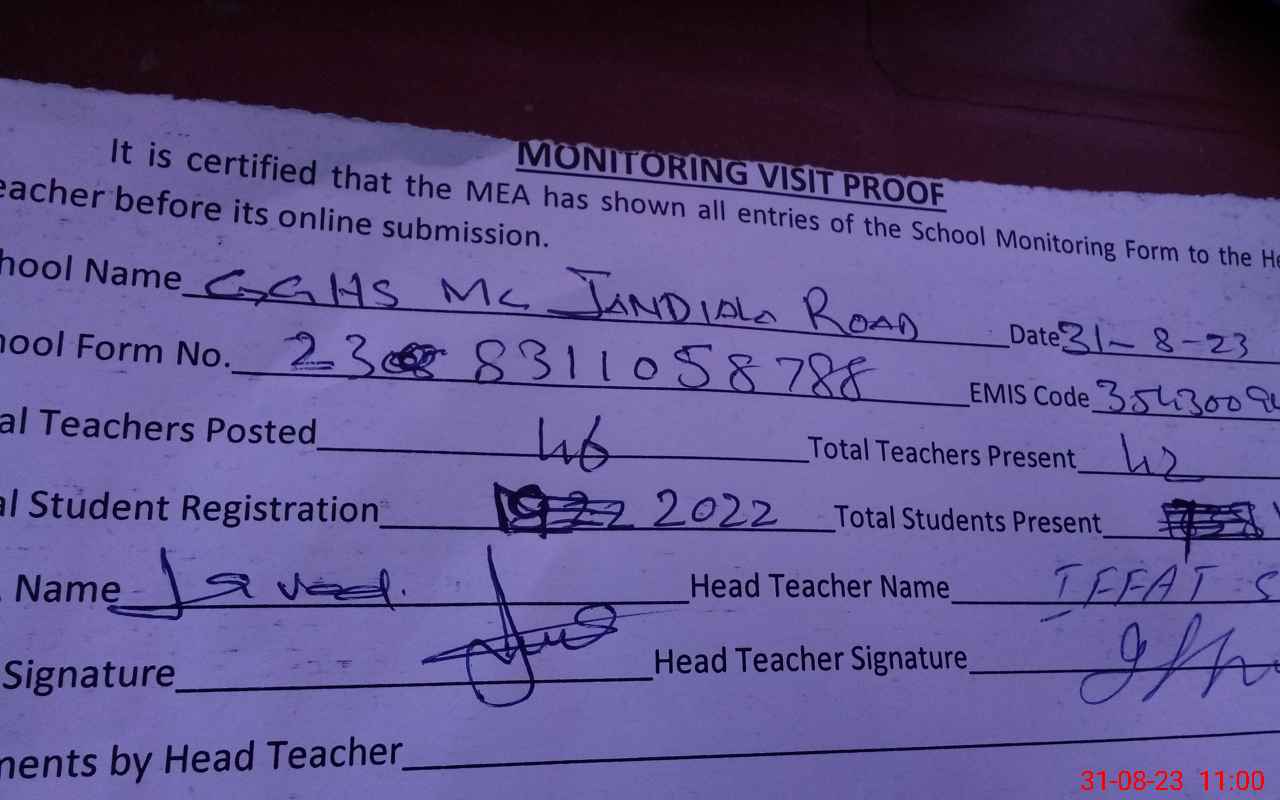 MONITORING VISIT PROOF
It is certified that the MEA has shown all entries of the School Monitoring Form to the He
eacher before its online submission.
hool Name GGHS MC JANDIALA ROAD Date 31-8-23
hool Form No. 23 8311058788 EMIS Code 3543009
al Teachers Posted 46 Total Teachers Present 42
al Student Registration 2022 Total Students Present
Name Javed. Head Teacher Name IFFAT S
Signature Head Teacher Signature
ments by Head Teacher
31-08-23 11:00